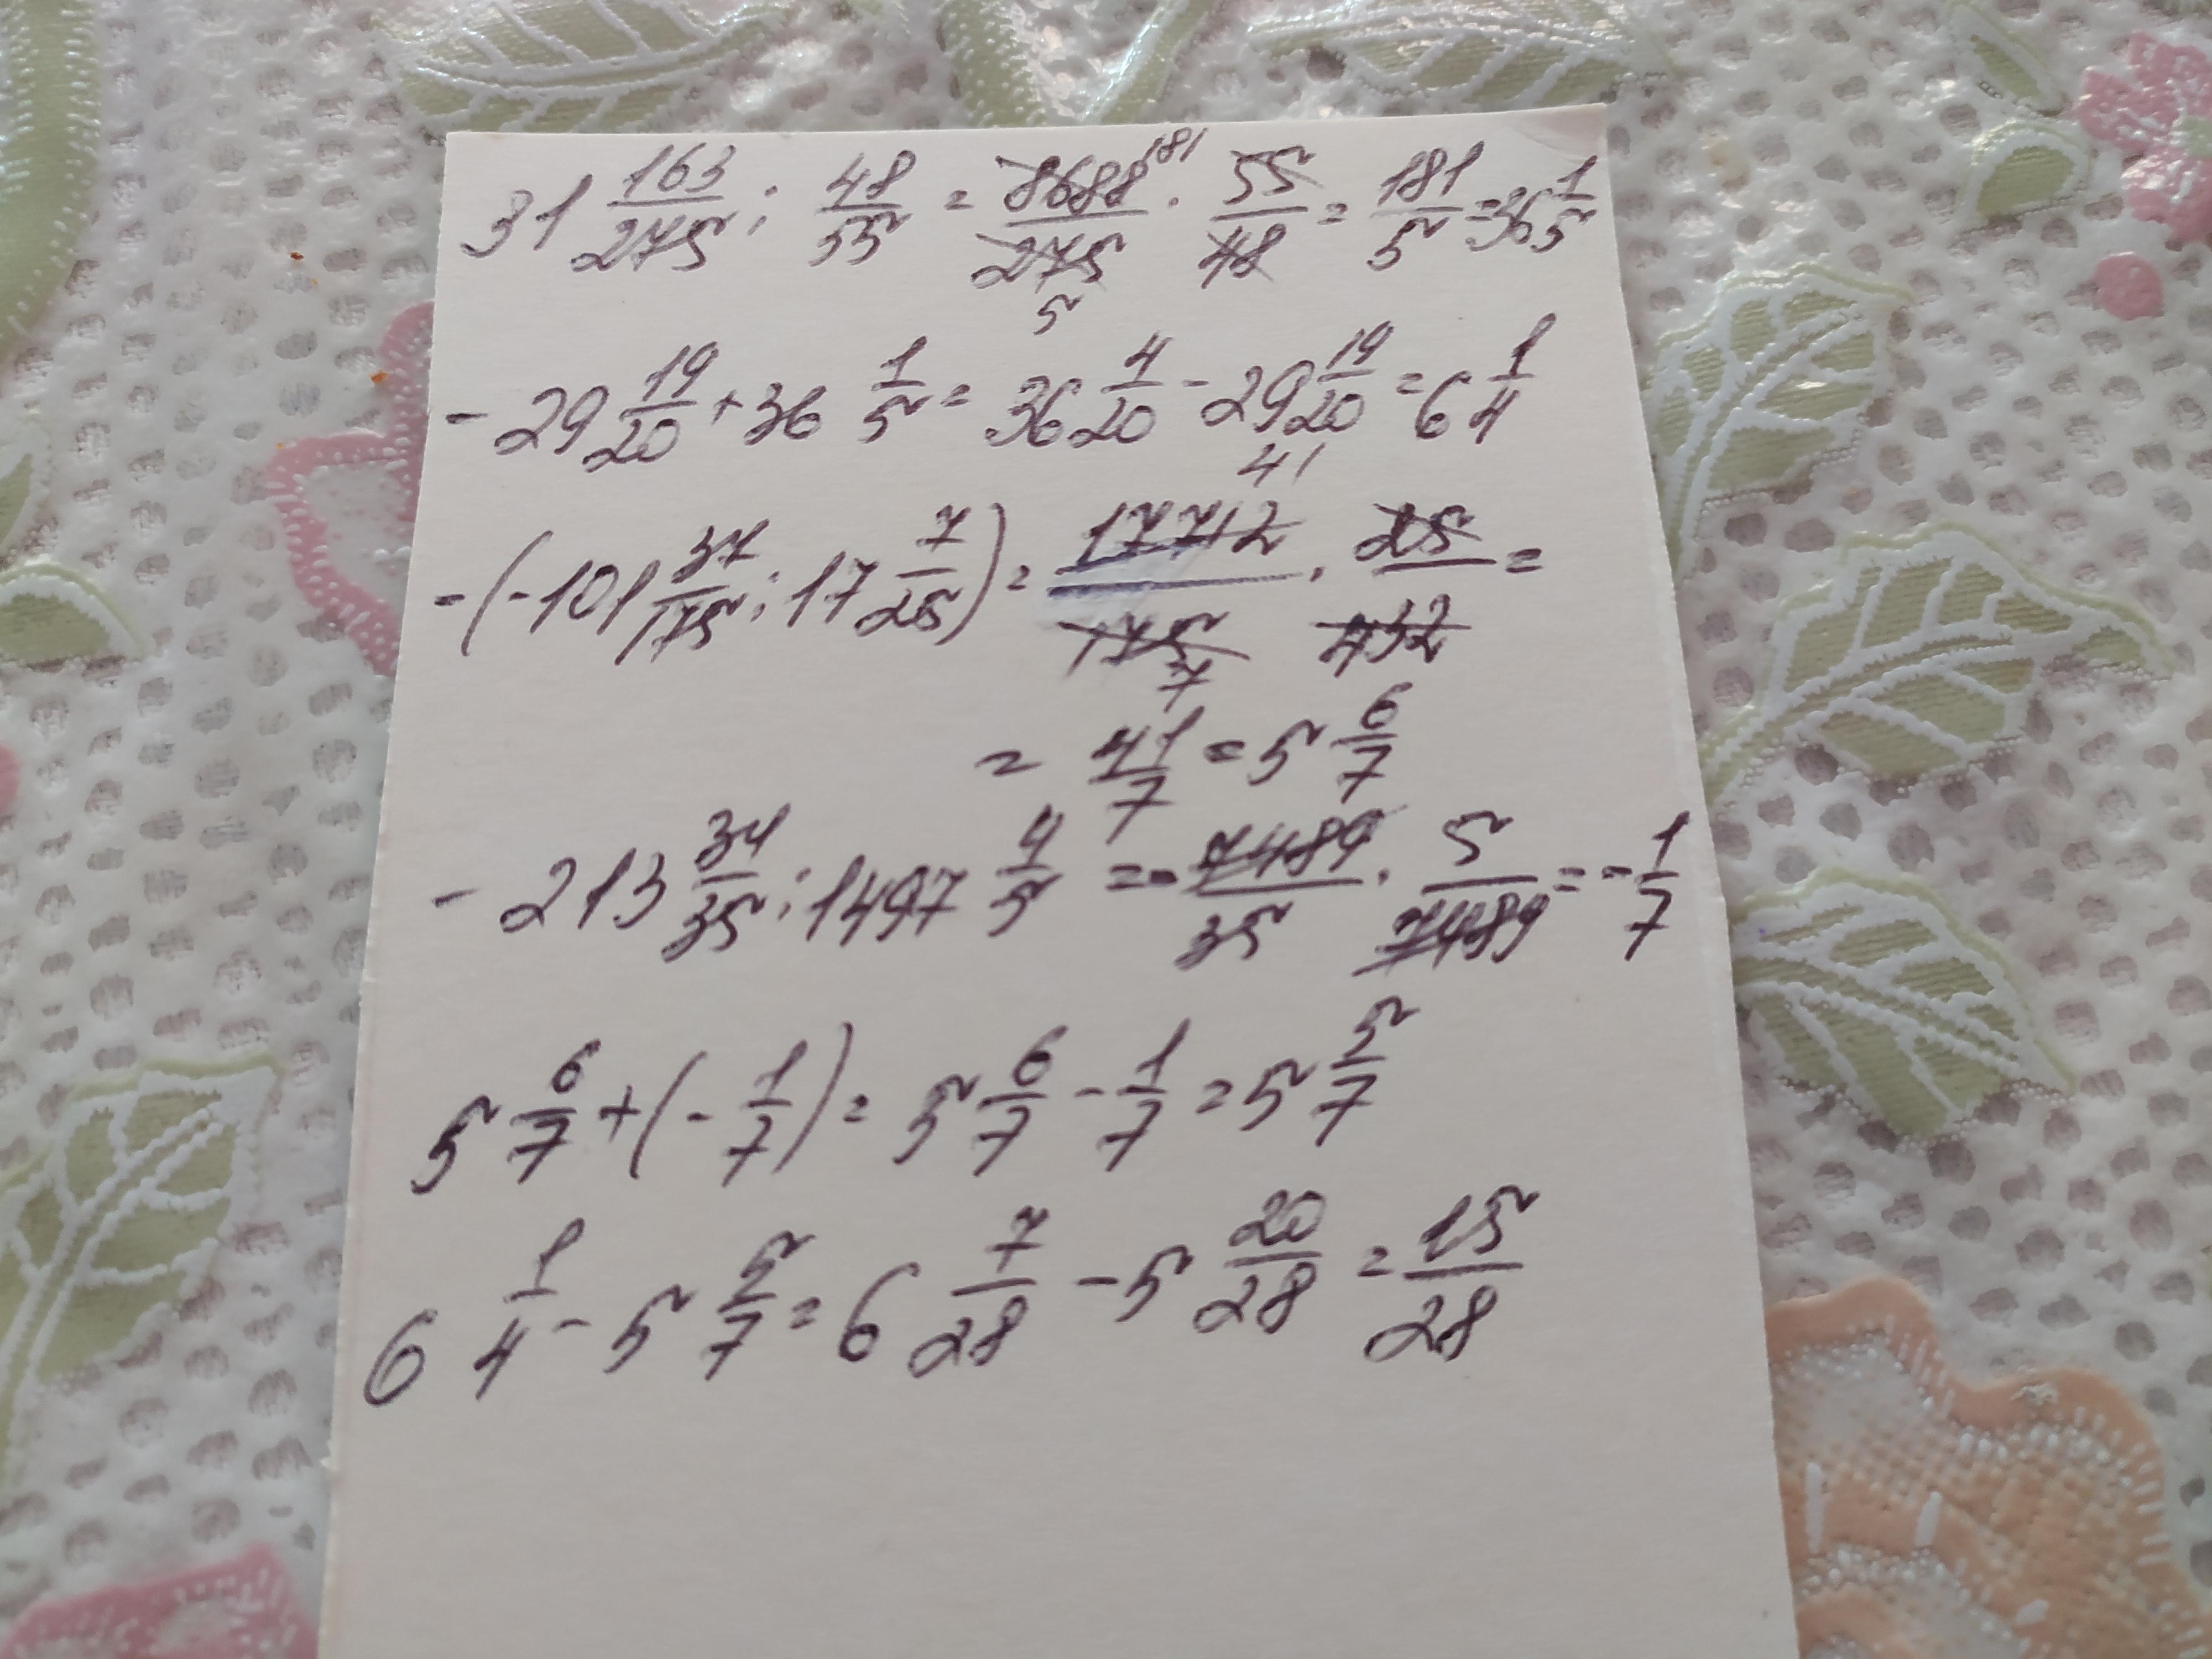 31 163/275 : 48/55 = 8688/275 181 5 · 55/48 = 181/5 = 36 1/5
- 29 19/20 + 36 1/5 = 36 4/20 - 29 19/20 = 6 1/4
- (-101 37/175 : 17 7/25) = 17712/175 41 7 · 25/432 =
= 41/7 = 5 6/7
- 213 34/35 : 1497 4/5 = - 7489/35 · 5/7489 = - 1/7
5 6/7 + (- 1/7) = 5 6/7 - 1/7 = 5 5/7
6 1/4 - 5 5/7 = 6 7/28 - 5 20/28 = 15/28